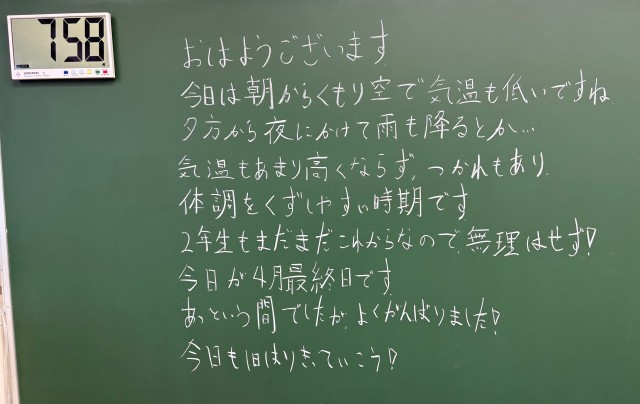 758
おはようございます
今日は朝からくもり空で気温も低いですね
夕方から夜にかけて雨も降るとか…
気温もあまり高くならず、つかれもあり、
体調をくずしやすい時期です
2年生もまだまだこれからなので、無理はせず!
今日が4月最終日です
あっという間でしたが、よくがんばりました!
今日も1日はりきっていこう!